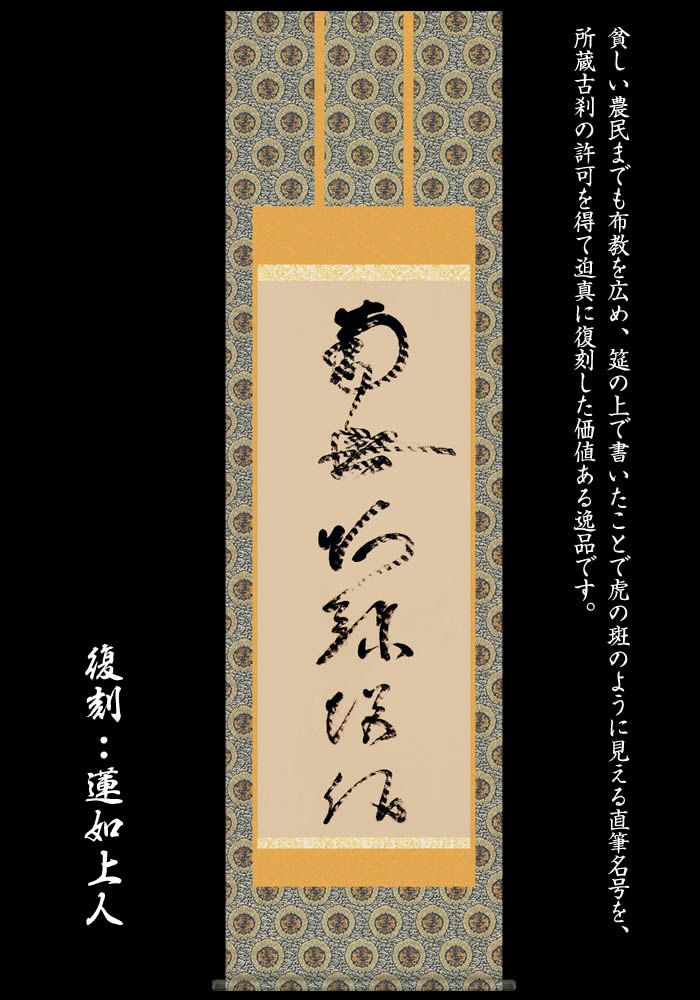 貧しい農民までも布教を広め、筵の上で書いたことで虎の斑のように見える直筆名号を、
所蔵古刹の許可を得て迫真に復刻した価値ある逸品です。
南無阿弥陀佛
復刻：蓮如上人